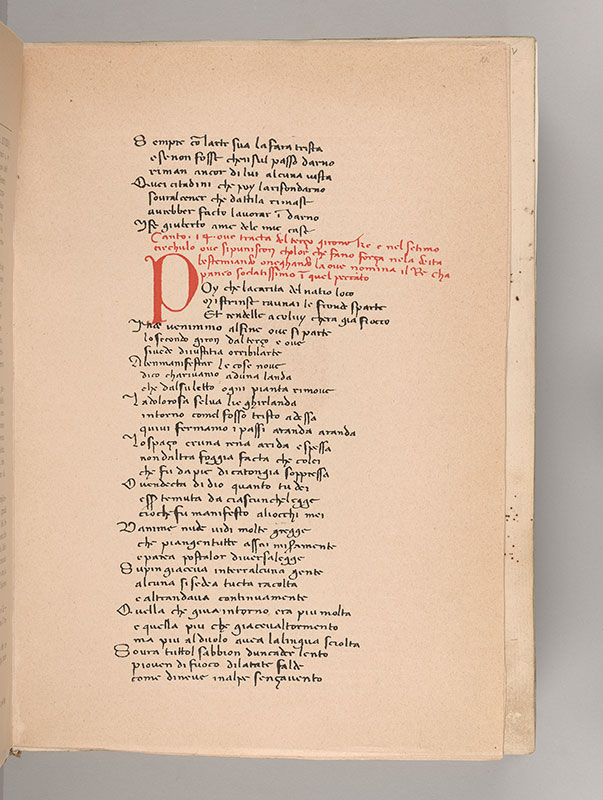 Sempre cō larte sua la fara trista
e se non fosse chen sul passo darno
riman ancor di lui alcuna vista
Quei citadini che poy larifondarno
sovralcener che dattila rimase
avrebber facto lavorar ī darno
I fe giuberto a me dele mie case
Canto .14. ove tracta del terço girone
e nel setimo
cerchulo ove si puniscon choloro che fano força nela deita
bestemiando o neghando la ove nomina il Re cha
paneo sceleratissimo ī quel peccato
Poy che la carita del natio loco
mi strinse raunai le fronde sparte
Et rendelle a colui chera gia fioco
Inde venimmo alfine ove si parte
lo secondo giron dal terço e ove
si vede di iustitia orribil arte
A ben manifestar le cose nove
dico charivamo ad una landa
che dal su letto ogni pianta rimove
La dolorosa selva le ghirlanda
intorno comel fosso tristo adessa
quivi fermamo i passi a randa a randa
Lo spaço era una rena arida e spessa
non daltra foggia facta che colei
che fu da pie di caton gia soppressa
O vendecta di dio quanto tu dei
esser temuta da ciascun che legge
cio che fu manifesto aliocchi mei
Danime nude vidi molte gregge
che piangen tutte assai miseramente
e parea posta lor diversa legge
Supin giaceva in terra alcuna gente
alcuna si sedea tucta racolta
e altra andava continuamente
Quella che giva intorno era piu molta
e quella piu che giaceva al tormento
ma piu al duolo avea la lingua sciolta
Sovra tuttol sabbion dun cader lento
pioven di fuoco dilatate falde
come di neve in alpe sença vento